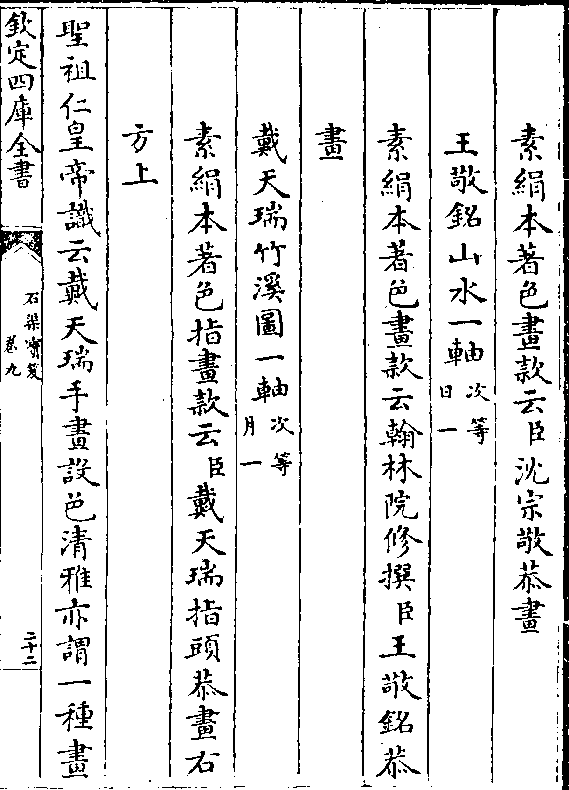 素絹本著色畫款云臣沈宗敬恭畫
王敬銘山水一軸次等
日一
素絹本著色畫款云翰林院修撰臣王敬銘恭
畫
戴天瑞竹溪圖一軸次等
月一
素絹本著色指畫款云臣戴天瑞指頭恭畫右
方上
聖祖仁皇帝識云戴天瑞手畫設色清雅亦謂一種畫
欽定四庫全書
石渠寶笈
卷九
二十二